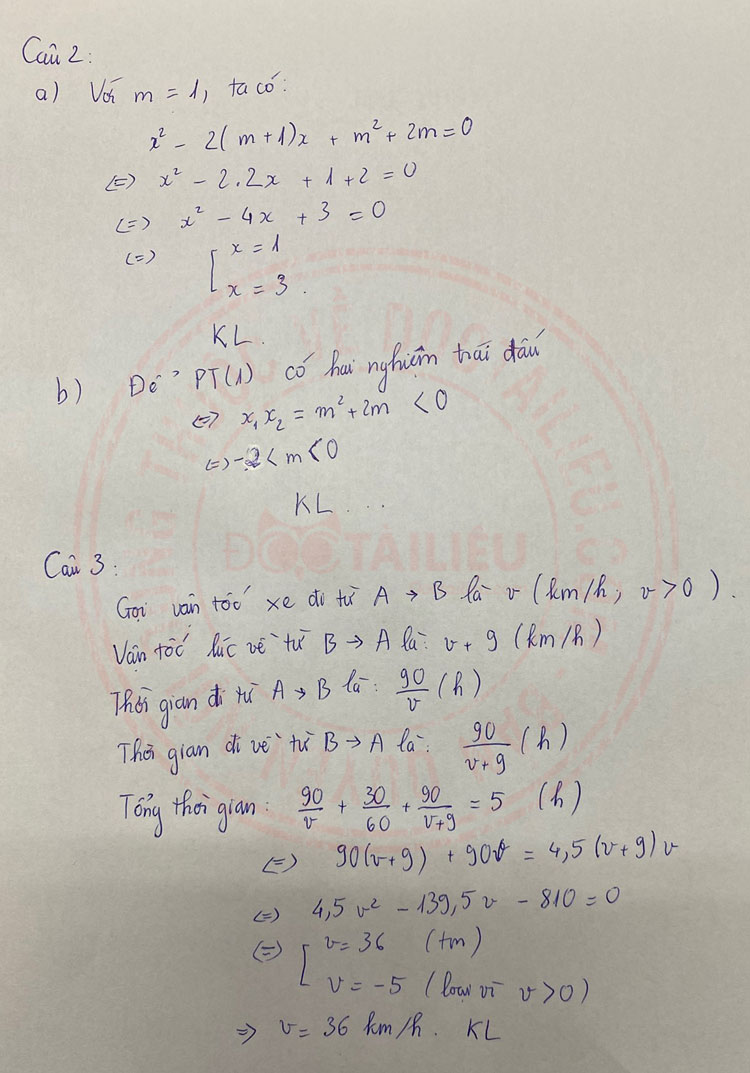 Câu 2:
a) Với m = 1, ta có:
x² - 2(m+1)x + m² + 2m = 0
(=) x² - 2.2x + 1 + 2 = 0
(=) x² - 4x + 3 = 0
(=) [ x = 1
x = 3.
KL.
b) Để PT(1) có hai nghiệm trái dấu
(=) x₁x₂ = m² + 2m < 0
(=) -2 < m < 0
KL ....
ĐỌCTÀILIỆU
Câu 3:
Gọi vận tốc xe đi từ A → B là v (km/h, v > 0).
Vận tốc lúc về từ B → A là: v + 9 (km/h)
Thời gian đi từ A → B là: 90/v (h)
Thời gian đi về từ B → A là: 90/(v+9) (h)
Tổng thời gian: 90/v + 30/60 + 90/(v+9) = 5 (h)
(=) 90(v+9) + 90v = 4,5(v+9)v
(=) 4,5v² - 139,5v - 810 = 0
(=) [ v = 36 (tm)
v = -5 (loại vì v > 0)
=> v = 36 km/h. KL